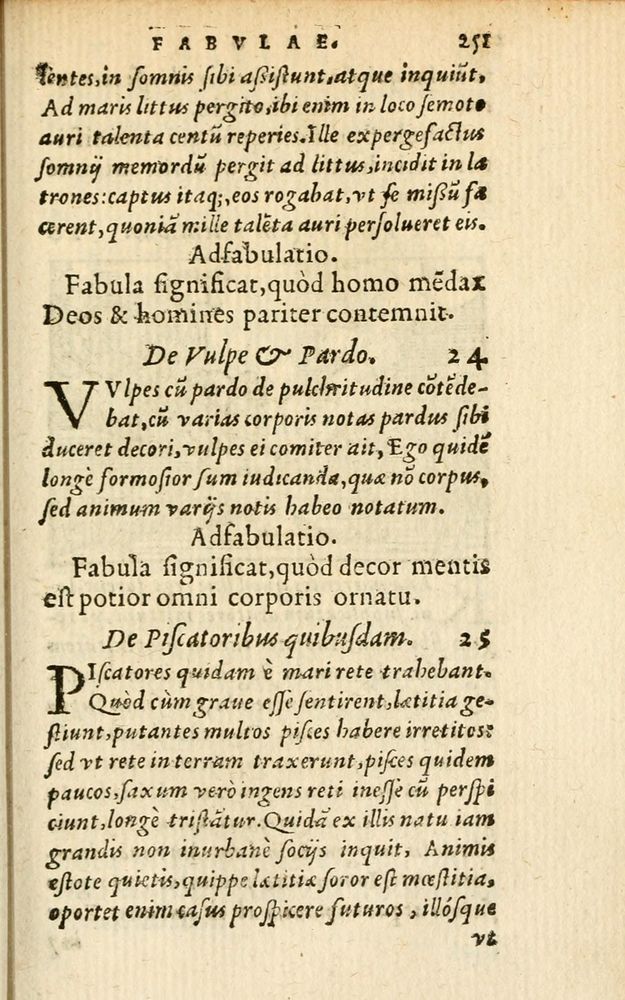 FABVLAE. 251
lentes,in somnis sibi aßistunt,atque inquiũt,
Ad maris littus pergito,ibi enim in loco semoto
auri talenta centũ reperies.Ille expergefactus
somnij memordũ pergit ad littus,incidit in la
trones:captus itaq;,eos rogabat,vt se mißũ fa
cerent,quoniã mille talẽta auri persolueret eis.
Adfabulatio.
Fabula significat,quòd homo mẽdax
Deos & homines pariter contemnit.
De Vulpe & Pardo. 24
VVlpes cũ pardo de pulchritudine cõtẽde-
bat,cũ varias corporis notas pardus sibi
duceret decori,vulpes ei comiter ait, Ego quidẽ
longè formosior sum iudicanda,quæ nõ corpus,
sed animum varijs notis habeo notatum.
Adfabulatio.
Fabula significat,quòd decor mentis
est potior omni corporis ornatu.
De Piscatoribus quibusdam. 25
PIscatores quidam è mari rete trahebant.
Quòd cùm graue esse sentirent,lætitia ge-
stiunt,putantes multos pisces habere irretitos:
sed vt rete in terram traxerunt,pisces quidem
paucos,saxum verò ingens reti inesse cũ perspi
ciunt,longè tristãtur.Quidã ex illis natu iam
grandis non inurbanè socijs inquit, Animis
estote quietis,quippe lætitiæ soror est mœstitia,
oportet enim casus prospicere futuros , illósque
vt